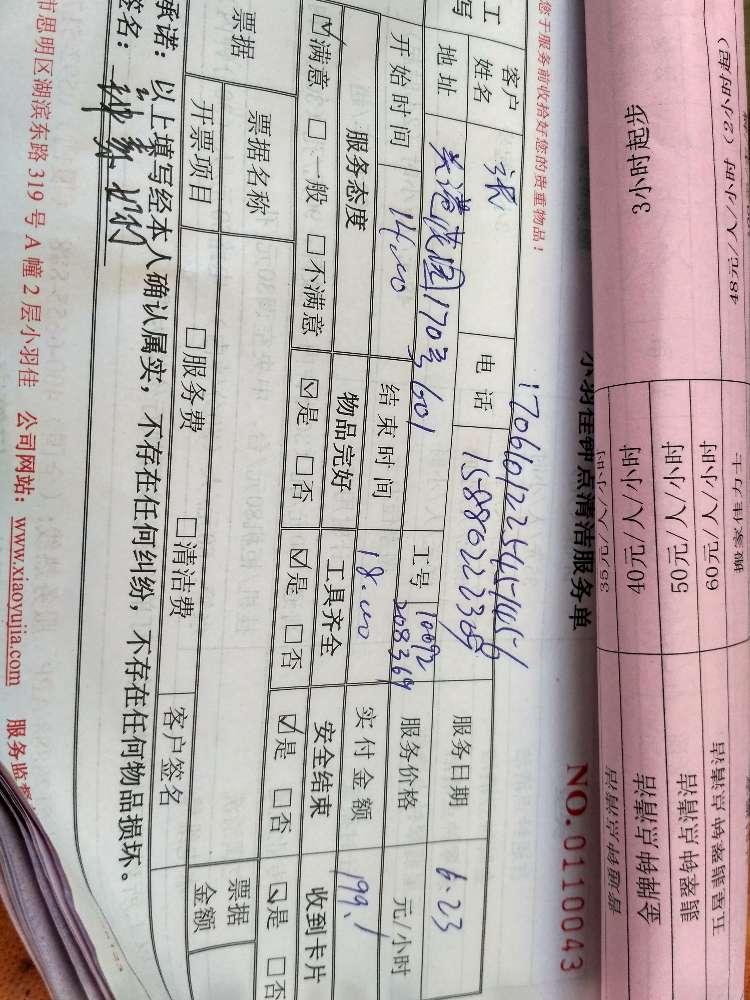 48元/人/小时（2小时起）
3小时起步
60元/人/小时
50元/人/小时
40元/人/小时
35元/人/小时
翡翠钟点清洁
金牌钟点清洁
普通钟点清洁
小羽佳钟点清洁服务单
NO.0110043
您于服务前收拾好您的贵重物品！
工
写
客户姓名 张 电话 服务日期 6.23
地址 170号601 工号 10092 208364 服务价格 元/小时
开始时间 14.00 结束时间 18.00 实付金额 199.1
服务态度 物品完好 工具齐全 安全结束 收到卡片
☑满意 □一般 □不满意 ☑是 □否 ☑是 □否 ☑是 □否 ☑是 □否
票据 票据名称 □服务费 □清洁费 票据金额
开票项目 客户签名
承诺：以上填写经本人确认属实，不存在任何纠纷，不存在任何物品损坏。
签名：
市思明区湖滨东路 319 号 A 幢 2 层小羽佳 公司网站：www.xiaoyujia.com 服务监督